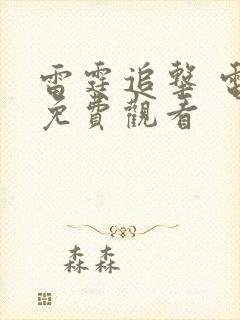 雷霆追擊 電
免費觀看
森森